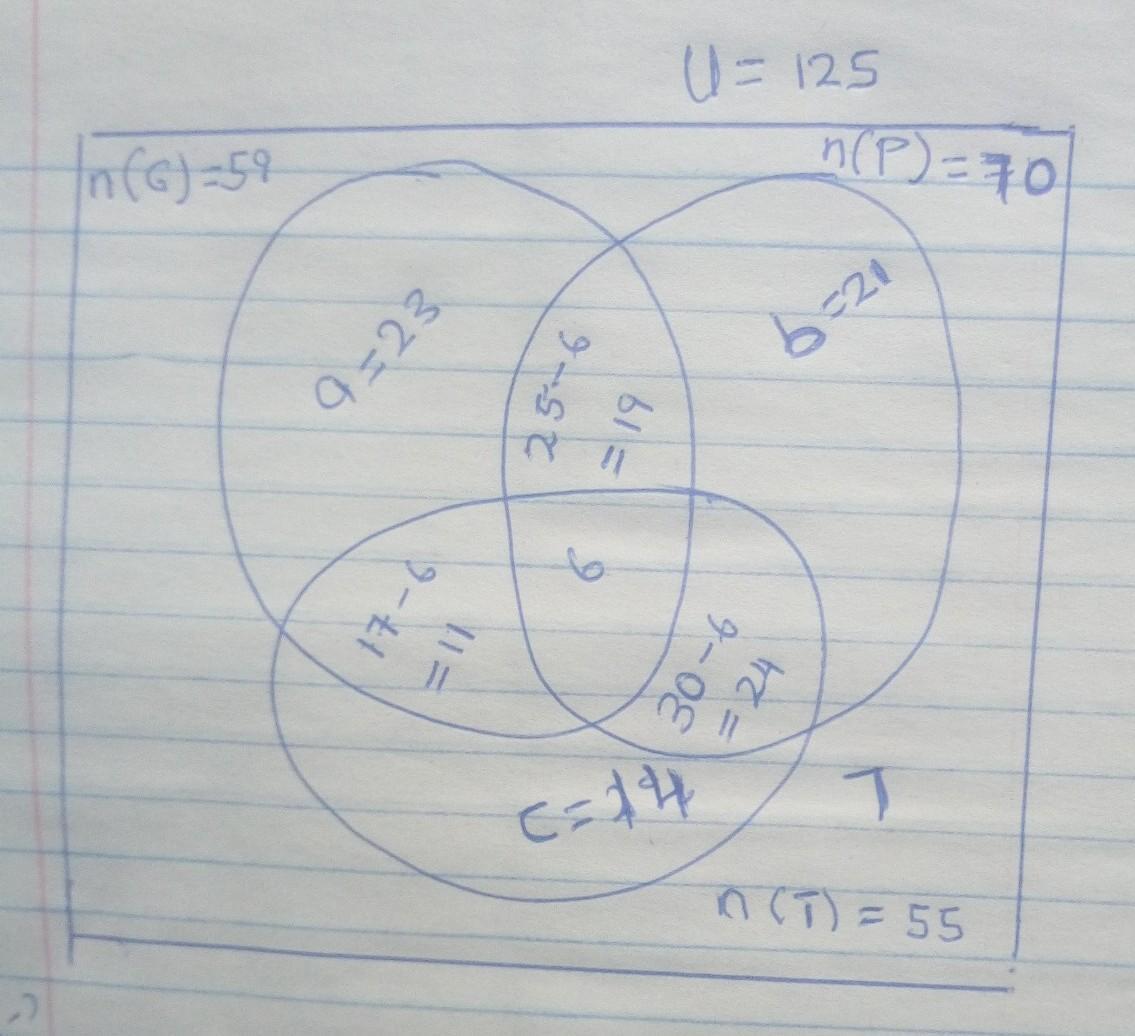 U = 125
n(G)=59
n(P) = 70
a = 23
b = 21
25-6
= 19
6
17-6
= 11
30-6
= 24
c = 14
T
n(T) = 55